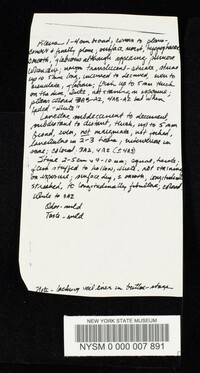 Pileus 1-4 cm broad, convex to plano-
convex & finally plane, surface moist, hygrophanous
smooth, glabrous although appearing
translucent-striate, striae
up to 5 mm long, incurved to decurved, even to
glabrous; flesh up to 5 mm thick
on the disc, white, not staining on exposure;
pileus colored 3A2, 4A2 but when
faded - white.
Lamellae subdecurrent to decurrent,
subdistant to distant, thick, up to 5 mm
broad, even, not marginate, not forked,
lamellulae in 2-3 tiers, intervenose in
some; colored 3A2, 4A2
Stipe 2-5 cm x 4-10 mm; equal, terete,
flesh stuffed to hollow, white, not staining
on exposure, surface dry, smooth, longitudinally
striated, to longitudinally fibrillose; colored
white to 3A2
Odor - mild
Taste - mild
Note - lacking veil even in button-stage
NEW YORK STATE MUSEUM
NYSM 0 000 007 891